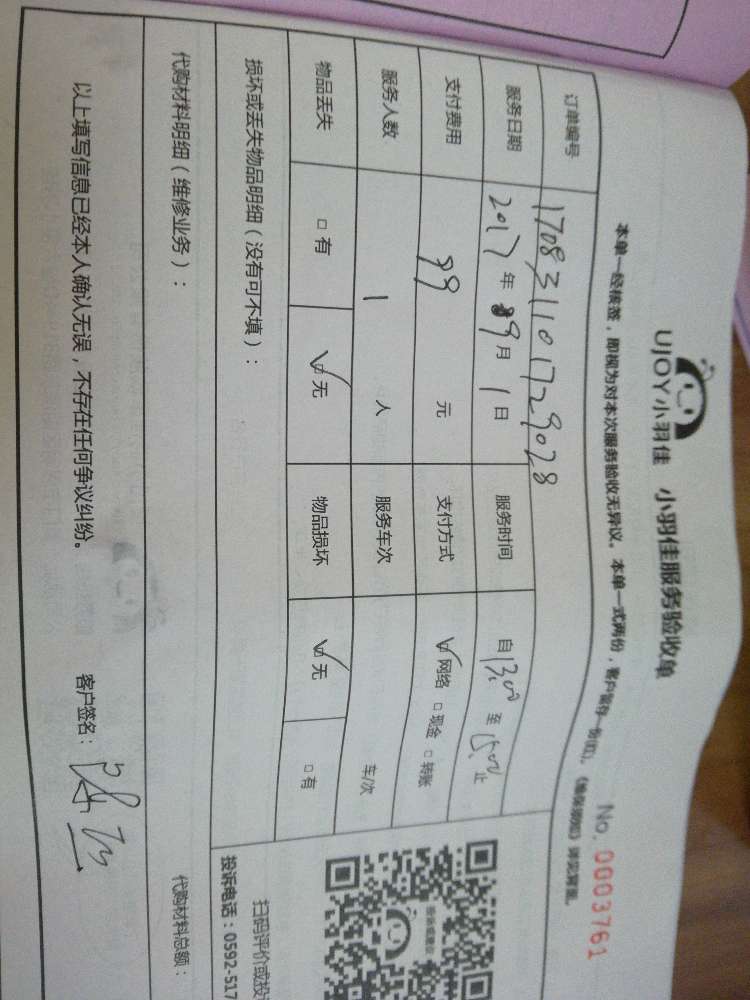 UJOY小羽佳 小羽佳服务验收单
No. 0003761
本单一经核签，即视为对本次服务验收无异议。本单一式两份，客户留存一份(红)。
订单编号 170831101729028
服务日期 2017年 9月 1日 服务时间 自 13:00 至 15:00 止
支付费用 99 元 支付方式 ☑网络 □现金 □转账
服务人数 1 人 服务车次 车/次
物品丢失 □有 ☑无 物品损坏 ☑无 □有
损坏或丢失物品明细（没有可不填）：
扫码评价或投
投诉电话：0592-517
代购材料明细（维修业务）： 代购材料总额：
以上填写信息已经本人确认无误，不存在任何争议纠纷。 客户签名：